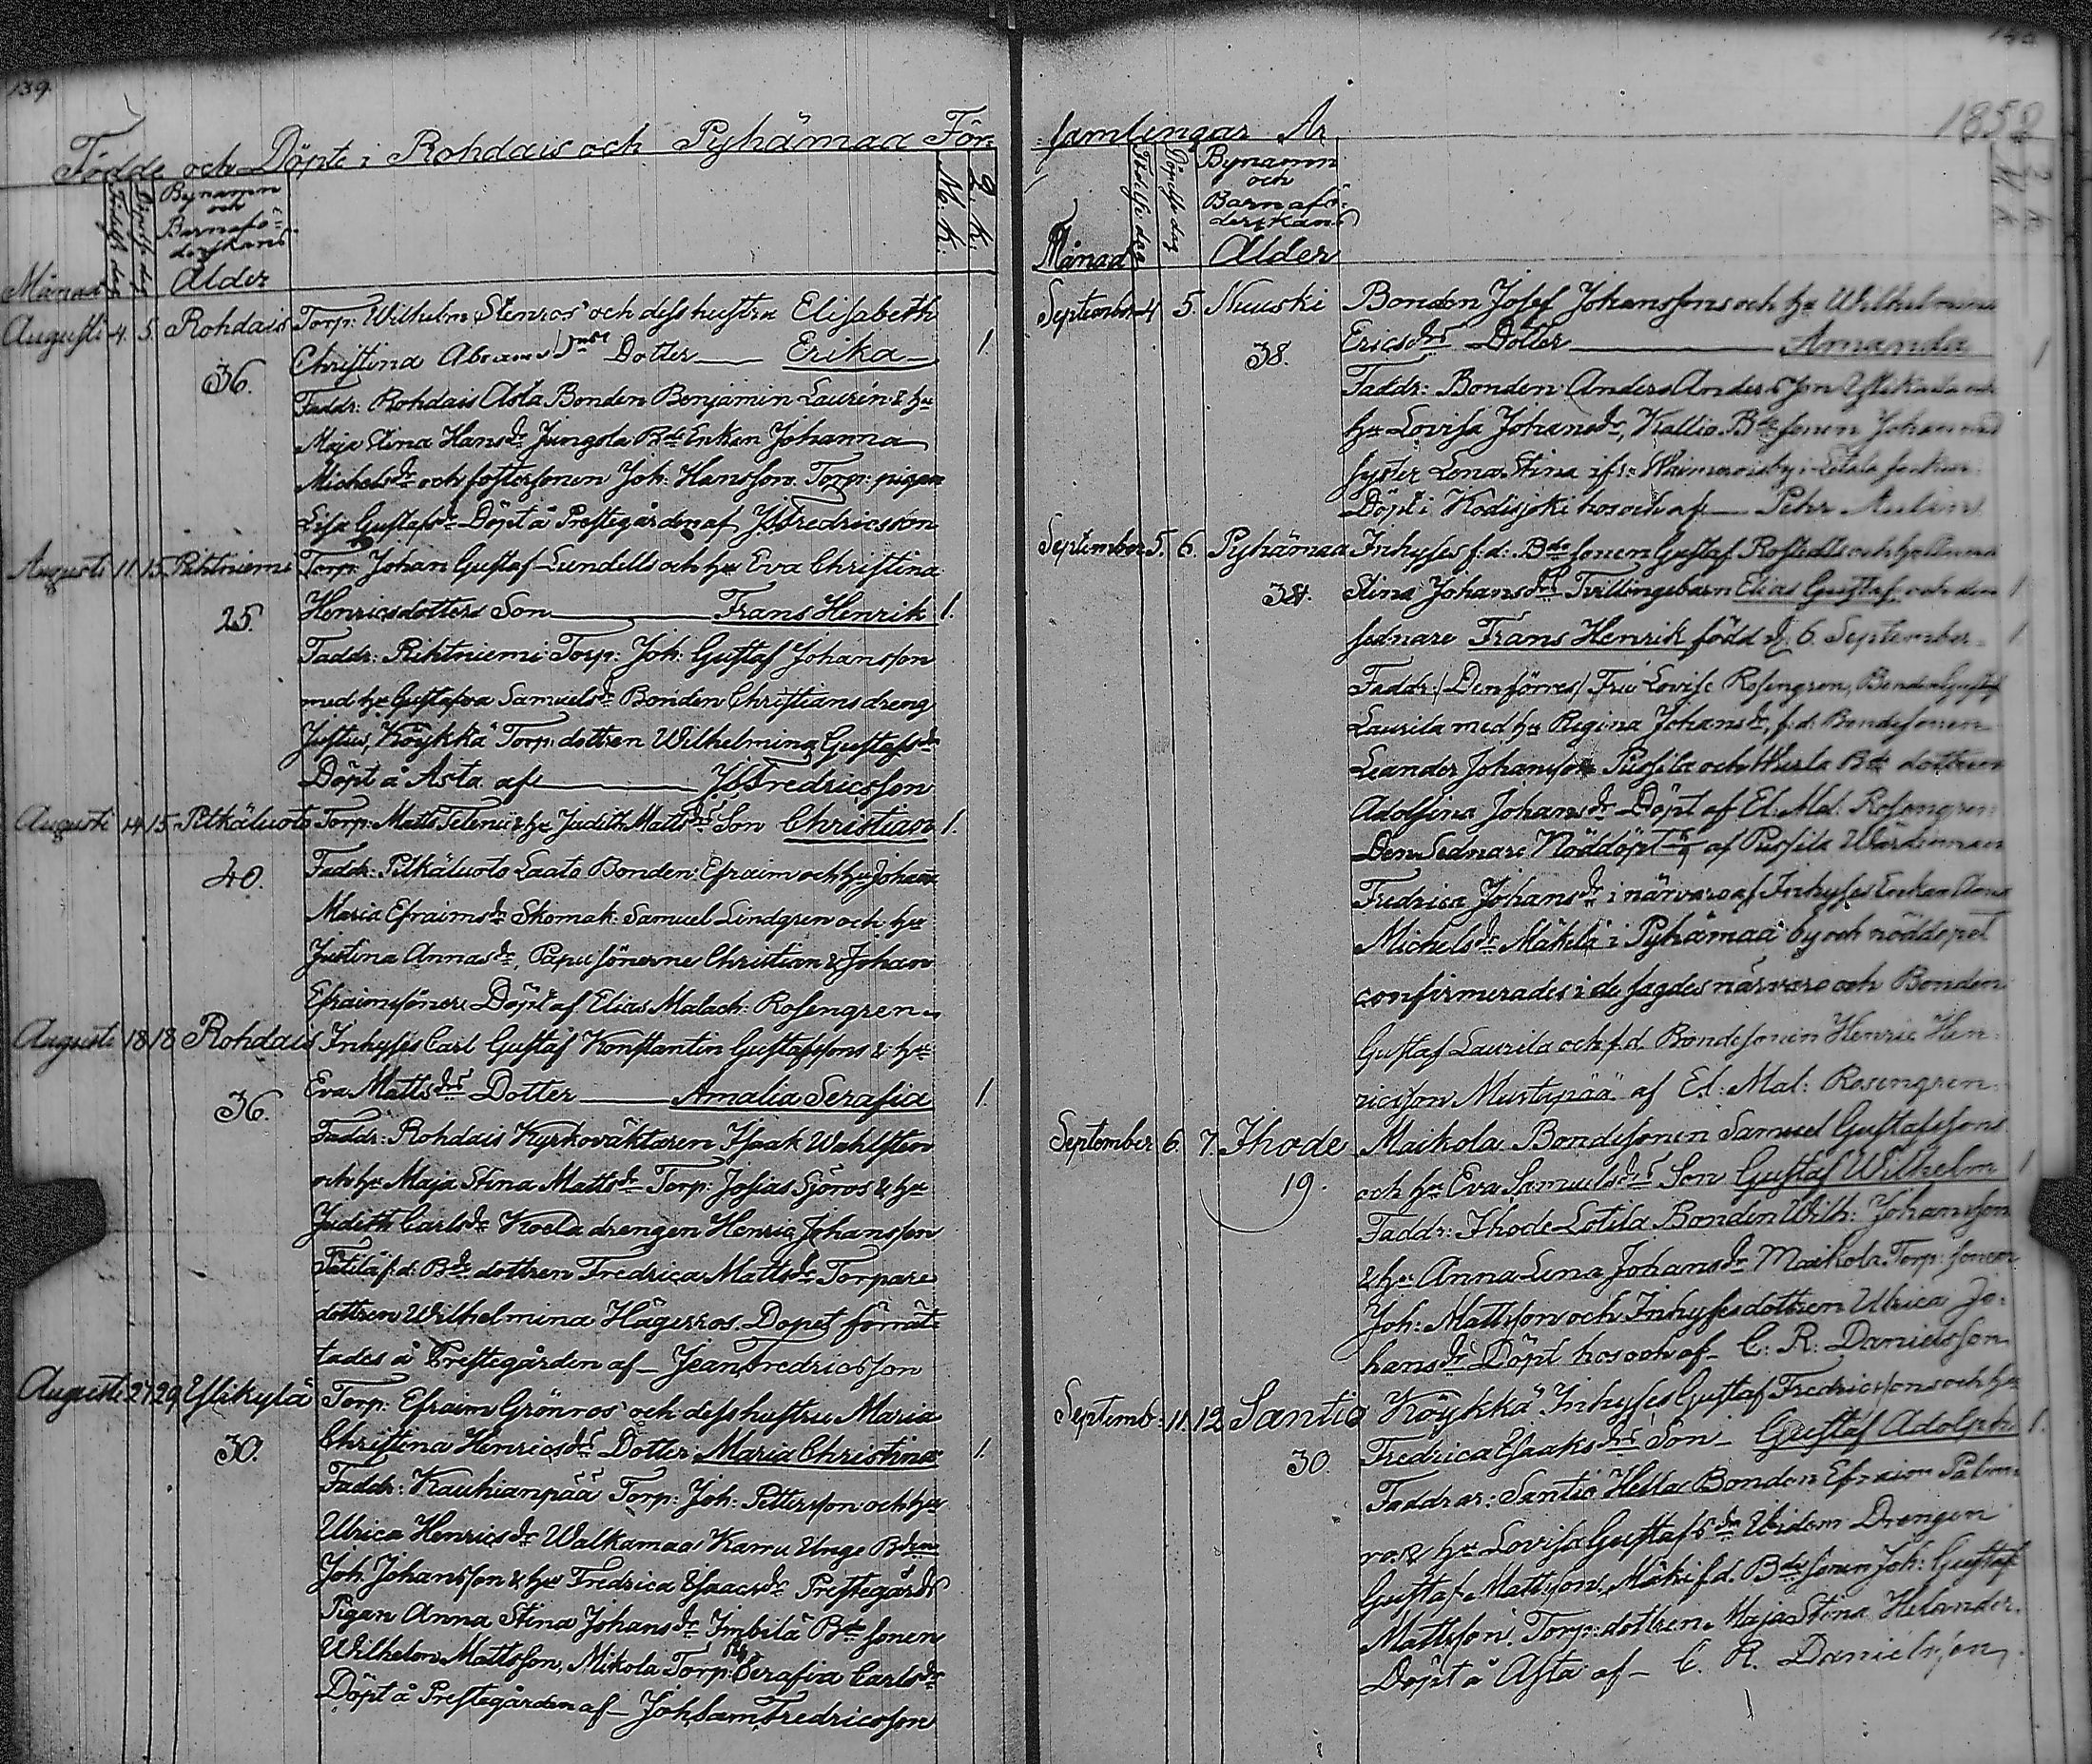 139.
Födde och Döpte i Rohdais och Pyhämaa För-
Månad
Födelse dag
Döpelse dag
Bynamn
och
Barnafö-
derskans
Ålder
M. K.
Q. K.
Augusti 4. 5. Rohdais Torp: Wilhelm Stenros' och dess hustru Elisabeth
36. Christina Abrams Dotter — Erika — 1.
Faddr: Rohdais Asta Bonden Benjamin Laurén & hu
Maja Stina Hansdr Jungola Bde Enkan Johanna
Michelsdr och fostersonen Joh: Hansson. Torp: pigan
Lisa Gustafsdr Döpt å Prestegården af JSFredricsson
Augusti 11. 15. Rihtniemi Torp: Johan Gustaf Lundells och hu Eva Christina
25. Henricsdotters Son — Frans Henrik 1.
Faddr: Rihtniemi Torp: Joh: Gustaf Johansson
med hu Gustafva Samuelsdr Bonden Christians dreng
Justus, Köykkä Torp: dottren Wilhelmina Gustafsdr
Döpt å Asta af — JSFredricsson
Augusti 14 15 Pitkäluoto Torp: Matts Telenii & hu Judith Mattsdrs Son Christian 1.
40. Faddr: Pitkäluoto Laato Bonden Efraim och hu Johana
Maria Efraimsdr Skomak: Samuel Lindgren och hu
Justina Annasdr, Papu sönerne Christian & Johan
Efraimsöner. Döpt af Elias Malach: Rosengren
Augusti 18 18 Rohdais Inhyses Carl Gustaf Konstantin Gustafssons & hu
36. Eva Mattsdrs Dotter — Amalia Serafia 1.
Faddr: Rohdais Kyrkoväktaren Isaak Wahlsten
och hu Maja Stina Mattsdr Torp: Josias Sjöros & hu
Judith Carlsdr Koela drengen Henric Johansson
f.d. Bde dottren Fredrica Mattsdr Torpare
dottren Wilhelmina Hägerros. Dopet förrät-
tades å Prestegården af — Jean Fredricsson
Augusti 27 29 Ylikylä Torp: Efraim Grönros' och dess hustru Maria
30. Christina Henricsdrs Dotter Maria Christina 1.
Faddr: Kauhianpää Torp: Joh: Pettersson och hu
Ulrica Henricsdr Walkamaa Kamu Unge Bden
Joh. Johansson & hu Fredrica Isaacsdr Prestegårds
Pigan Anna Stina Johansdr Imbilä Bde sonen
Wilhelm Mattsson, Mikola Torp: Serafia Carlsdr
Döpt å Prestegården af — Joh Sam Fredricsson
samlingar År 1852
Månad
Födelse dag
Döpelse dag
Bynamn
och
Barnafö-
derskans
Ålder
September 4 5. Nuuski Bonden Josef Johanssons och hu Wilhelmina
38. Ericsdrs Dotter — Amanda 1
Faddr: Bonden Anders Andersson
hu Lovisa Johansdr, Kallio Bde sonen Johan med
syster Lena Stina
Döpt i Kodisjoki hos och af — Pehr Aulin
September 5. 6. Pyhämaa Inhyses f.d. Bde sonen Gustaf Rostedts och hu Anna
Stina Johansdrs Tvillingebarn Elias Gustaf och den 1
sednare Frans Henrik född d. 6. September 1
Faddr: (Den förres) Fru Lovise Rosengren, Bonden Gustaf
Laurila med hu Regina Johansdr, f.d. Bondesonen
Leander Johansson Pusila och Bde dottren
Adolfina Johansdr Döpt af El: Mal: Rosengren
Den Sednare Nöddöpt af Pusila Wärdinnan
Fredrica Johansdr i närvaro af Inhyses Enkan Anna
Michelsdr Mäkilä i Pyhämaa by och nöddopet
confirmerades i de sagdes närvaro och Bonden
Gustaf Laurila och f.d. Bondesonen Henric Hen-
ricsson Mustapää af El: Mal: Rosengren
September 6. 7. Ihode Maikola Bondesonen Samuel Gustafssons
19. och hu Eva Samuelsdrs Son Gustaf Wilhelm 1
Faddr: Ihode Lotila Bonden Wilh: Johansson
& hu Anna Lena Johansdr Maikola Torp: sonen
Joh: Mattsson och Inhysesdottren Ulrica Jo-
hansdr Döpt hos och af — C. R. Danielsson
Septemb: 11. 12 Santio Köykkä Inhyses Gustaf Fredricssons och hu
30. Fredrica Isaaksdrs Son — Gustaf Adolph 1.
Faddrar: Santio Hella Bonden Efraim Palm-
ros & hu Lovisa Gustafsdr Ibidem Drengen
Gustaf Mattsson. Mäki f.d. Bde sonen Joh: Gustaf
Mattsson. Torp: dottren Maja Stina Helander.
Döpt å Asta af — C. R. Danielsson